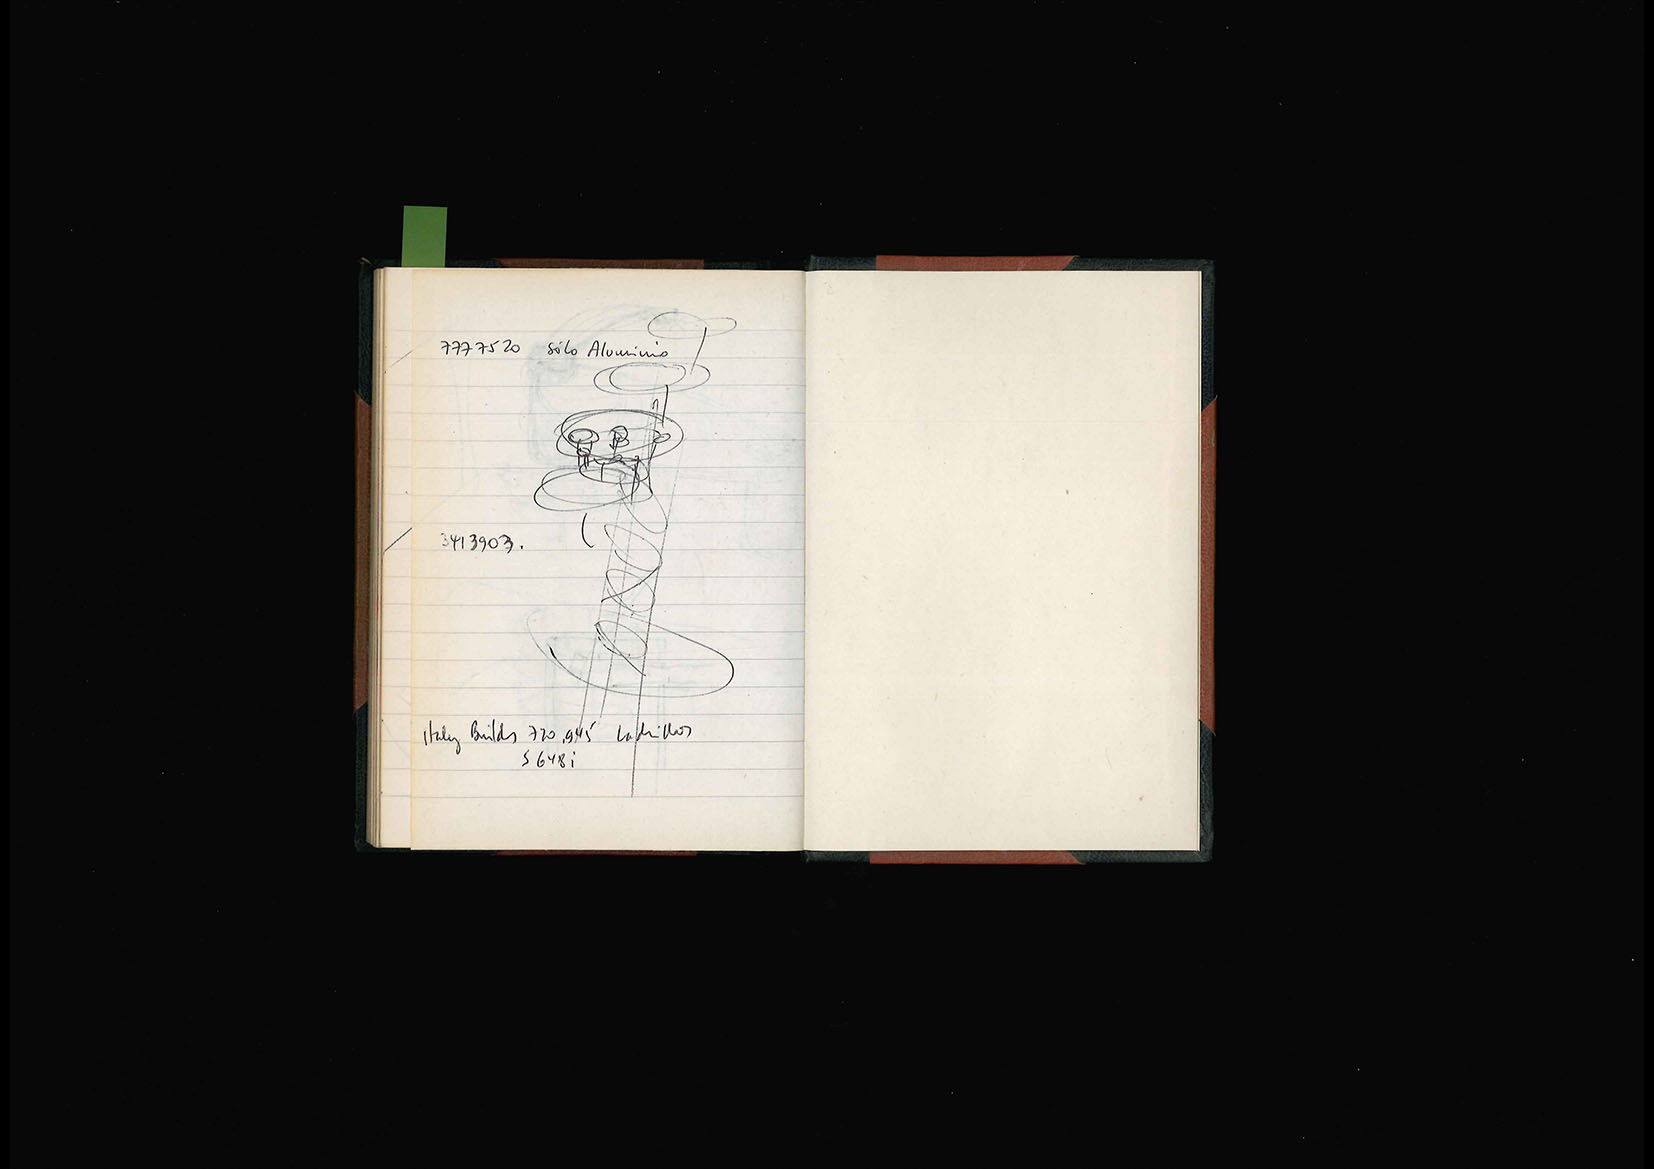 7777520 sólo Aluminio
3413903.
Italy Builds 720.945 Ladrillos
S648i